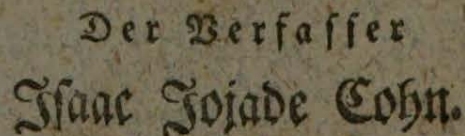 Der Verfaſſer
Iſaac Jojade Cohn.